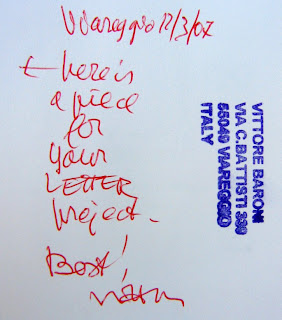 Viareggio 12/3/07
← here is
a piece
for
your
LETTER
project.
Best!
VITTORE BARONI
VIA C. BATTISTI 339
55049 VIAREGGIO
ITALY